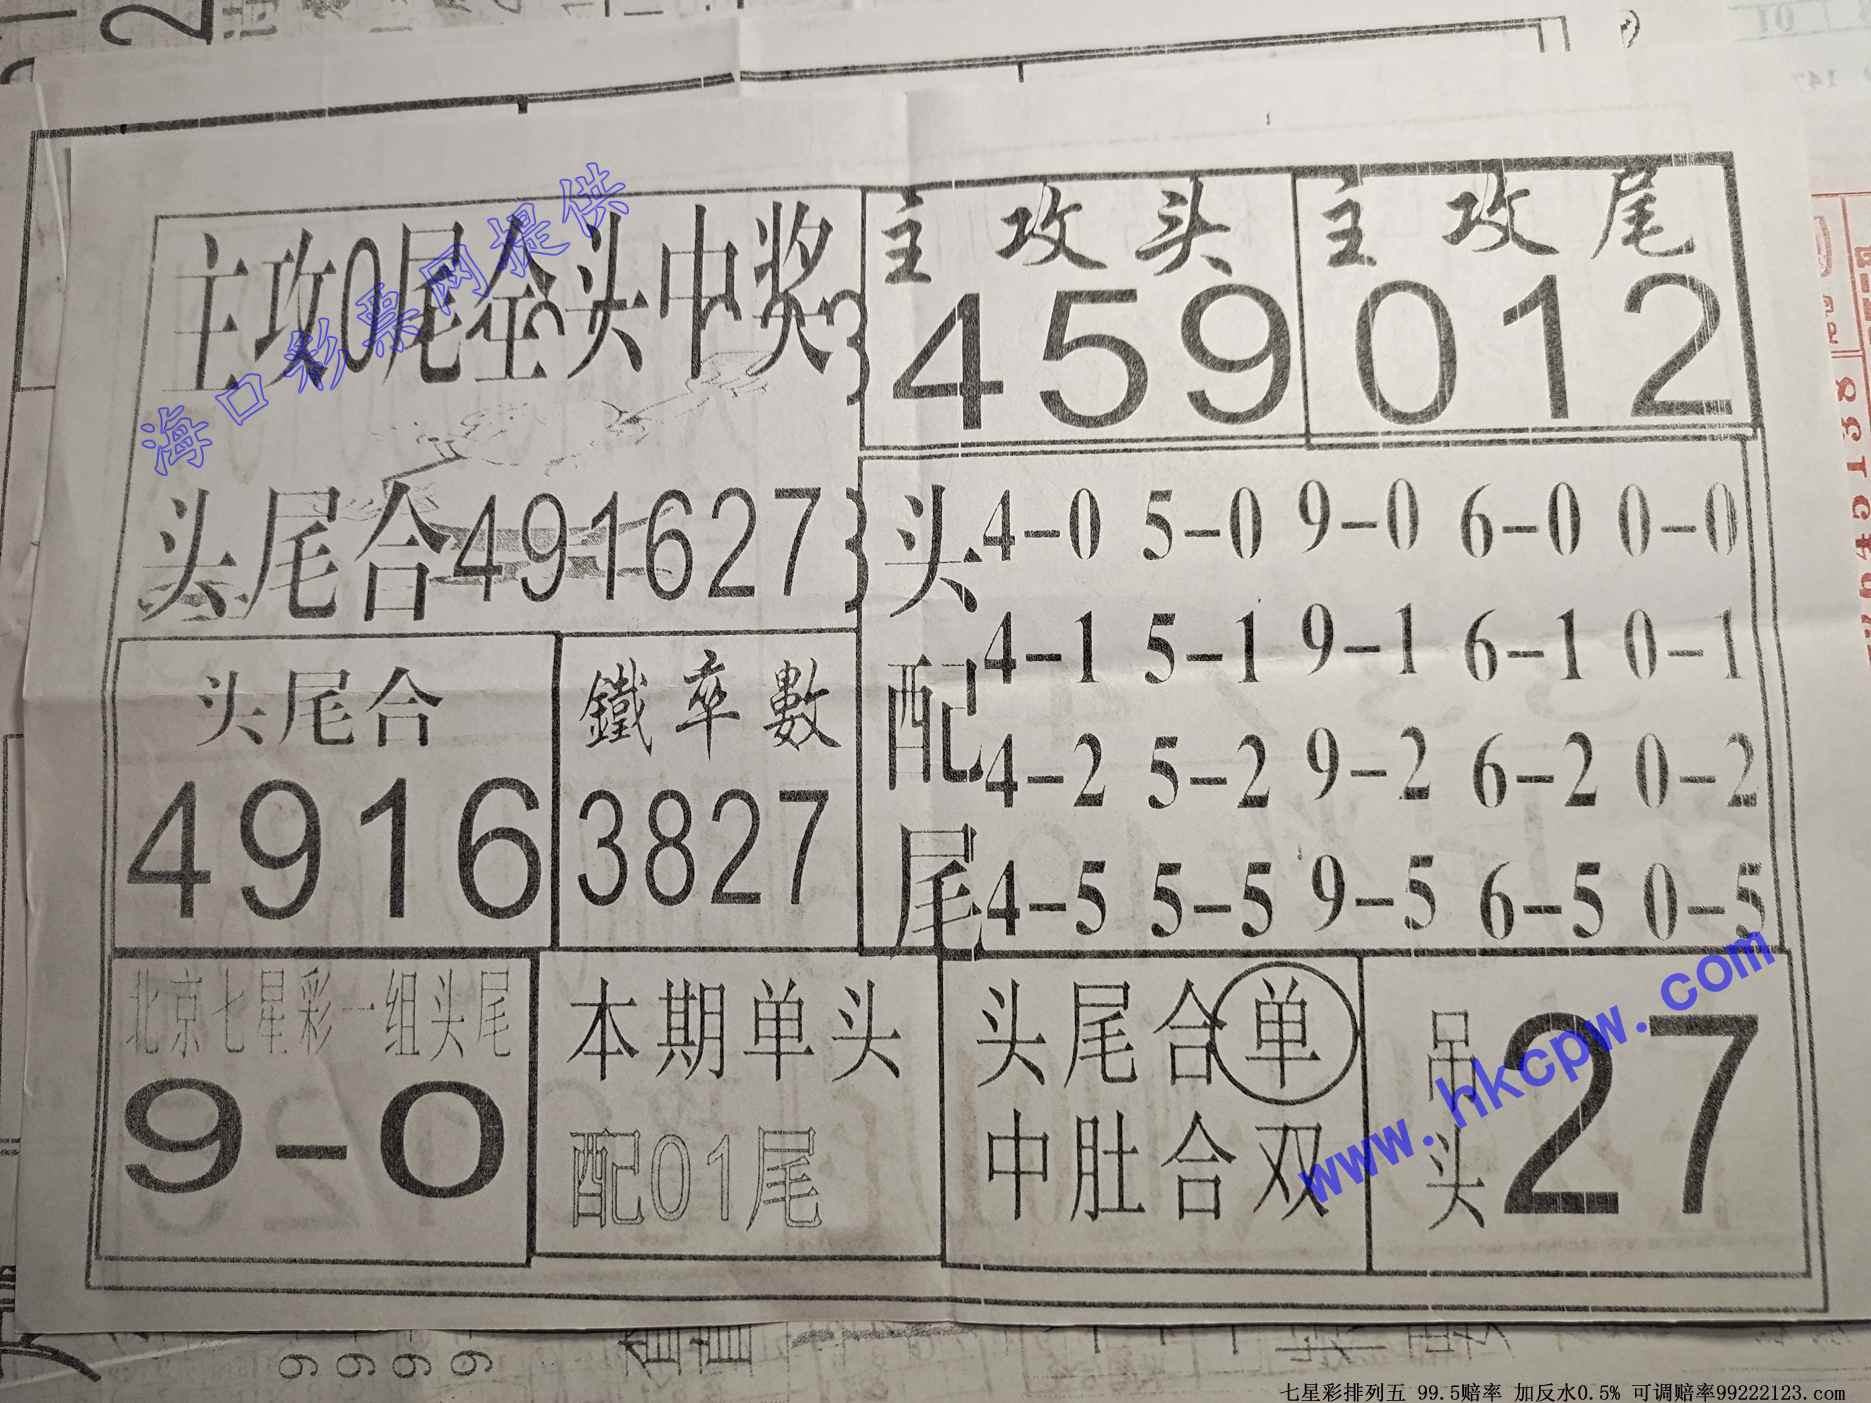 主攻0尾全头中奖
海口彩票网提供
头尾合491627
主攻头
459
主攻尾
012
头配尾
4-0 5-0 9-0 6-0 0-0
4-1 5-1 9-1 6-1 0-1
4-2 5-2 9-2 6-2 0-2
4-5 5-5 9-5 6-5 0-5
头尾合
4916
鐵率數
3827
北京七星彩一组头尾
9-0
本期单头
配01尾
头尾合单
中肚合双
吊头27
www.hkcpw.com
七星彩排列五 99.5赔率 加反水0.5% 可调赔率99222123.com